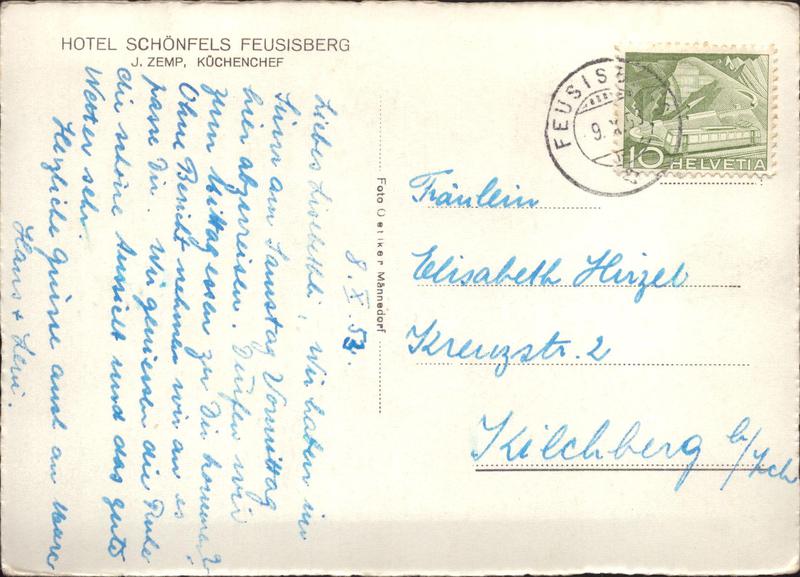 HOTEL SCHÖNFELS FEUSISBERG
J. ZEMP, KÜCHENCHEF
8. X. 53.
Liebes Lisebethli! Wir haben im
Sinn am Samstag Vormittag
hier abzureisen. Dürfen wir
zum Mittagessen zu Dir kommen?
Ohne Bericht nehmen wir an es
passe Dir. Wir geniessen die Ruhe
die schöne Aussicht und das gute
Wetter sehr.
Herzliche Grüsse auch an
Hans +
Foto Oetiker Männedorf
FEUSISBERG
9. X. 53
10 HELVETIA
Fräulein
Elisabeth Hirzel
Kreuzstr. 2
Kilchberg b/Zch